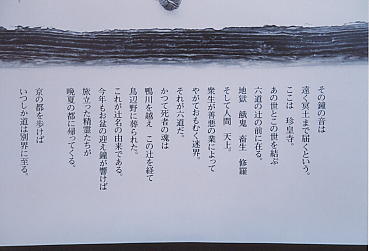 その鐘の音は
遠く冥土まで届くという。
ここは 珍皇寺。
あの世とこの世を結ぶ
六道の辻の前に在る。
地獄 餓鬼 畜生 修羅
そして人間 天上。
衆生が善悪の業によって
やがておもむく迷界。
それが六道だ。
かつて死者の魂は
鴨川を越え この辻を経て
鳥辺野に葬られた。
これが辻名の由来である。
今年もお盆の迎え鐘が響けば
旅立った精霊たちが
晩夏の都に帰ってくる。
京の都を歩けば
いつしか道は別界に至る。